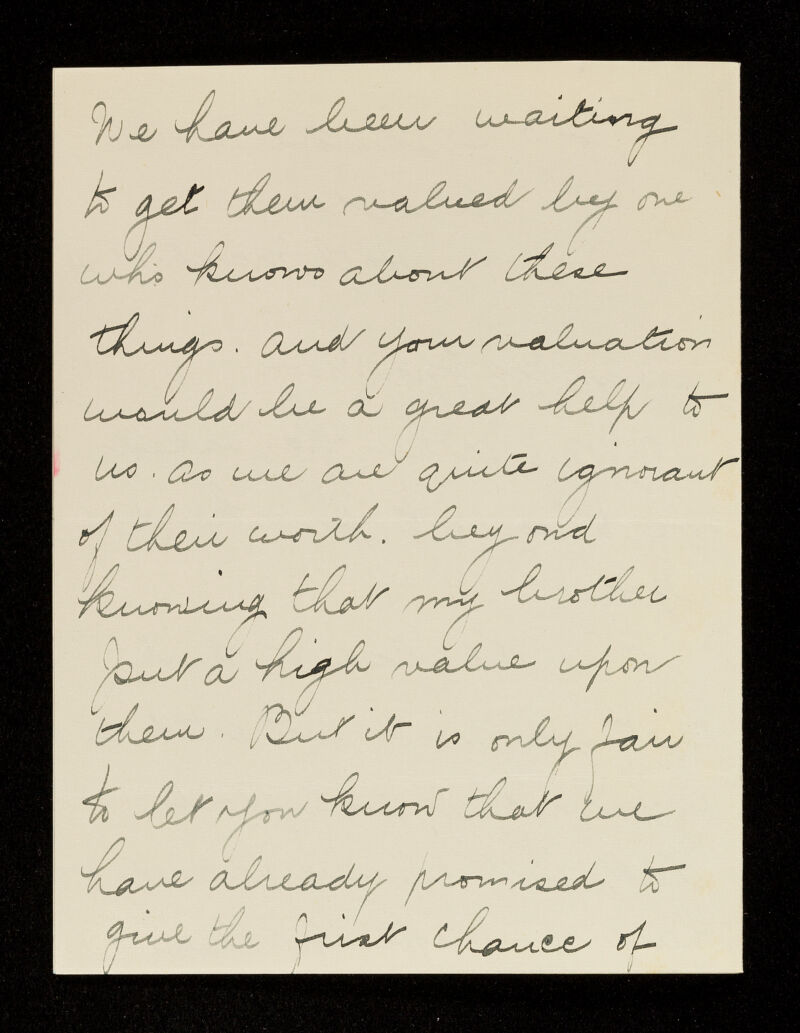 We have been waiting
to get them valued by one
who knows about these
things. and your valuation
would be a great help to
us. as we are quite ignorant
of their worth. beyond
knowing that my brother
put a high value upon
them. But it is only fair
to let you know that we
have already promised to
give the first chance of